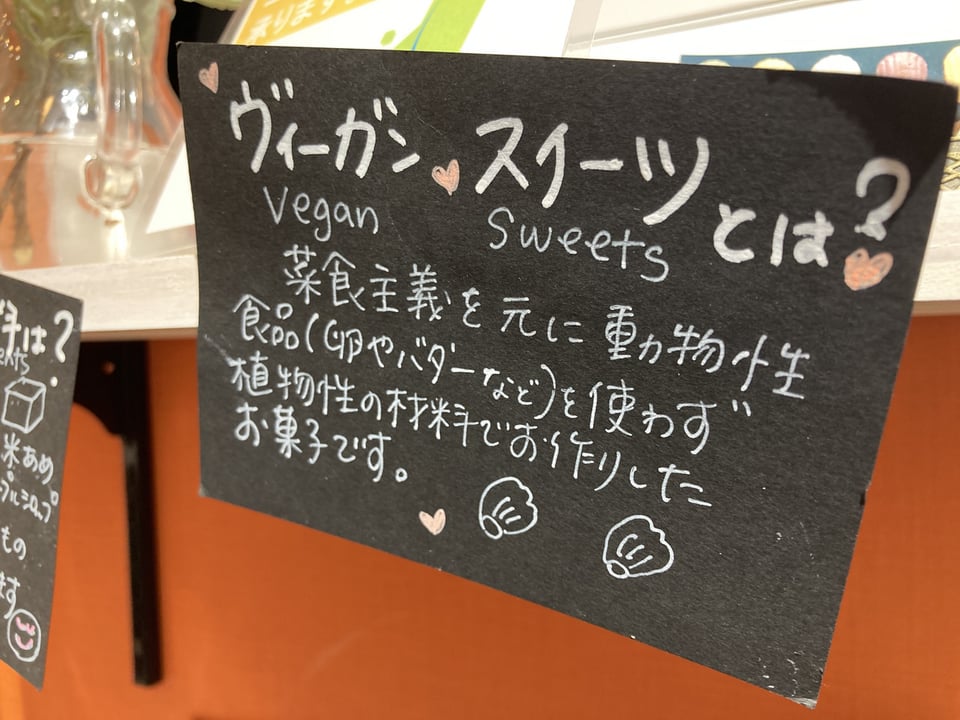 承ります
ヴィーガン スイーツとは?
Vegan Sweets
菜食主義を元に動物性
食品(卵やバターなど)を使わず
植物性の材料でお作りした
お菓子です。
料は?
ents
米あめ
プルシロップ
もの
ます